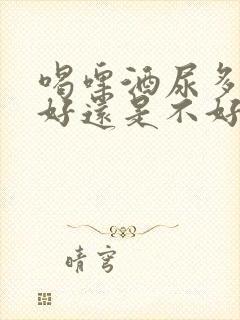 喝啤酒尿多
好還是不好
晴穹